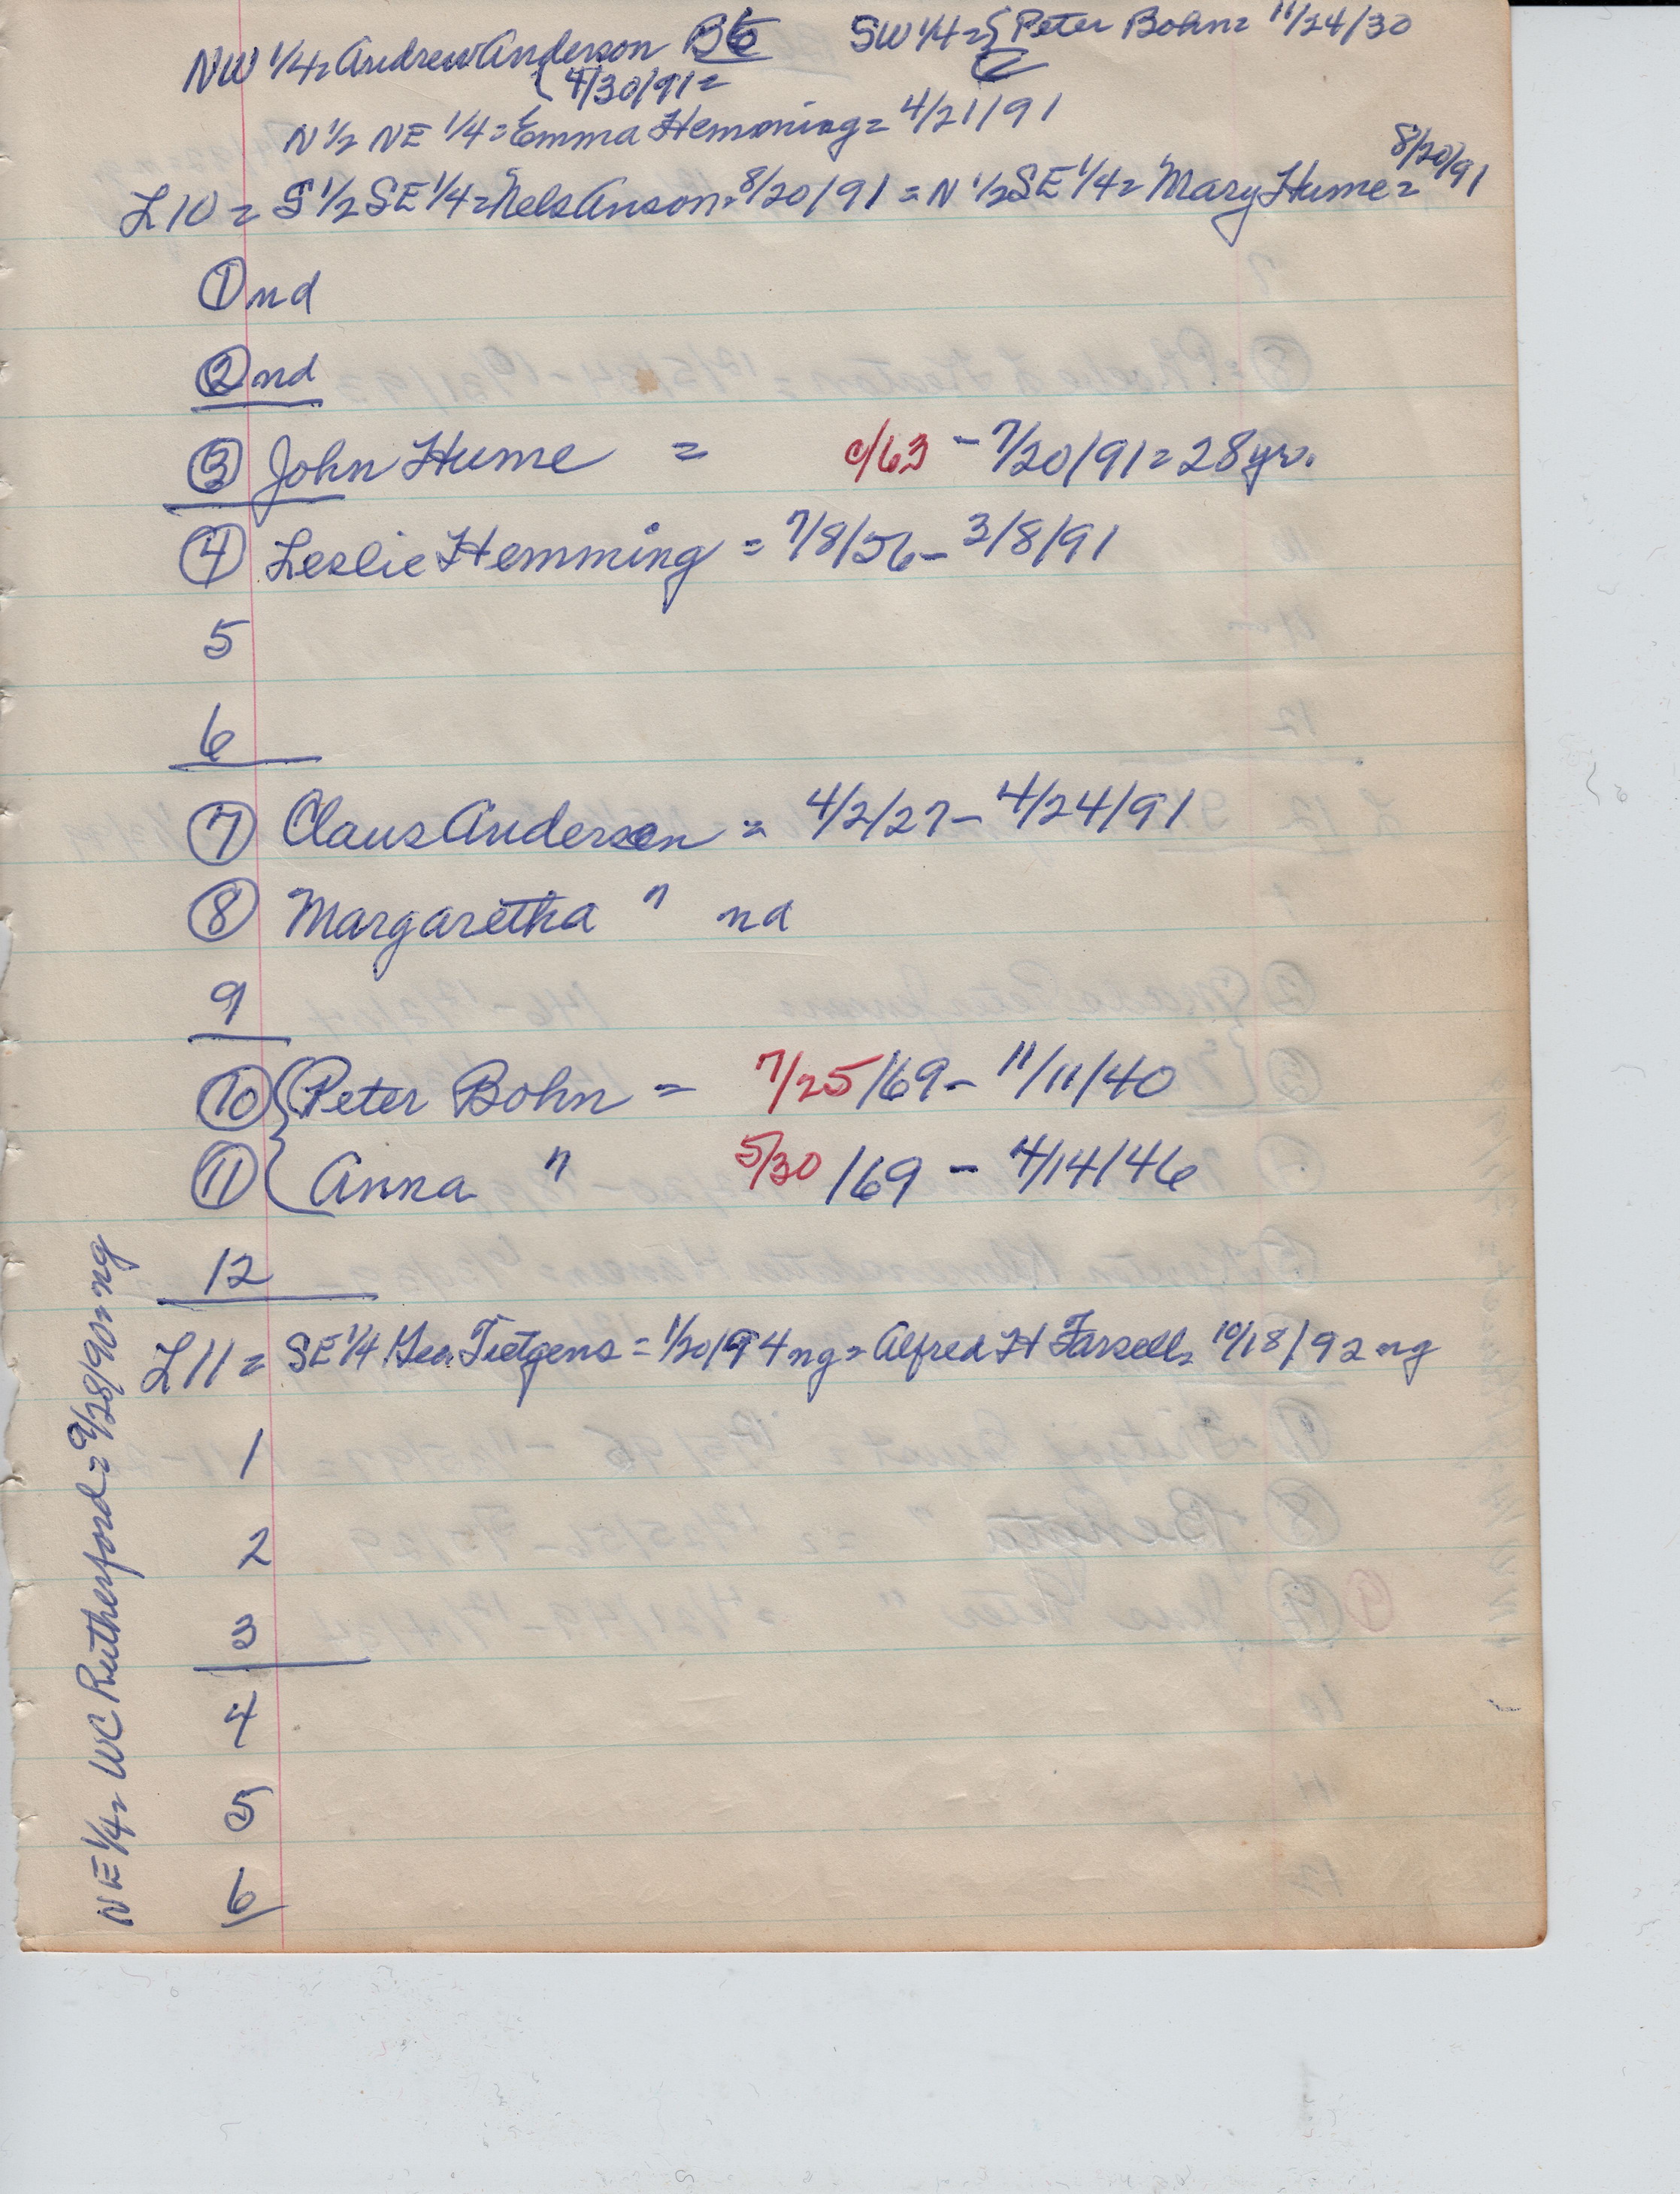 NW 1/4= Andrew Anderson B6 SW 1/4={Peter Bohn= 11/24/30
{4/30/91=
N 1/2 NE 1/4= Emma Hemming= 4/21/91
8/20/91
L10 = S 1/2 SE 1/4= Nels Anson= 8/20/91 = N 1/2 SE 1/4= Mary Hume=
① nd
② nd
③ John Hume = c/63 - 7/20/91 = 28 yr.
④ Leslie Hemming = 7/8/56 - 3/8/91
5
6
⑦ Claus Anderson = 4/2/27 - 4/24/91
⑧ Margaretha " nd
9
⑩ {Peter Bohn = 7/25/69 - 11/11/40
⑪ {Anna " 5/30/69 - 4/14/46
12
L11 = SE 1/4 Geo. Tietgens = 1/20/94 ng = Alfred H Farsell= 10/18/92 ng
1
2
3
4
5
6
NE 1/4= WC Rutherford = 9/28/90= ng